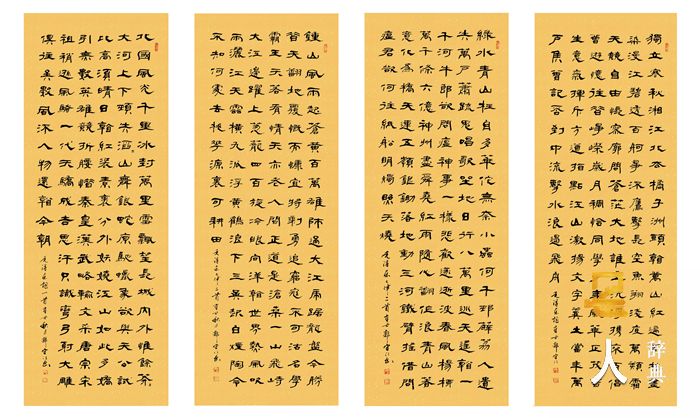 獨立寒秋湘江北去橘子洲頭看萬山紅遍層林盡
染漫江碧透百舸爭流鷹擊長空魚翔淺底萬類霜
天競自由悵寥廓問蒼茫大地誰主沉浮攜來百侶
曾遊憶往昔崢嶸歲月稠恰同學少年風華正茂書
生意氣揮斥方遒指點江山激揚文字糞土當年萬
戶侯曾記否到中流擊水浪遏飛舟
綠水青山枉自多華佗無奈小蟲何千邨薜荔人遺
矢萬戶蕭疏鬼唱歌坐地日行八萬里巡天遙看一
千河牛郎欲問瘟神事一樣悲歡逐逝波春風楊柳
萬千條六億神州盡舜堯紅雨隨心翻作浪青山著
意化為橋天連五嶺銀鋤落地動三河鐵臂搖借問
瘟君欲何往紙船明燭照天燒
鍾山風雨起蒼黃百萬雄師過大江虎踞龍盤今勝
昔天翻地覆慨而慷宜將剩勇追窮寇不可沽名學
霸王天若有情天亦老人間正道是滄桑一山飛峙
大江邊躍上蔥蘢四百旋冷眼向洋看世界熱風吹
雨灑江天雲橫九派浮黃鶴浪下三吳起白煙陶令
不知何處去桃花源裏可耕田
北國風光千里冰封萬里雪飄望長城內外惟餘莽
大河上下頓失滔山舞銀蛇原馳蠟象欲與天公試
比高須晴日看紅裝素裹分外妖嬈江山如此多嬌
引無數英雄競折腰惜秦皇漢武略輸文采唐宗宋
祖稍遜風騷一代天驕成吉思汗只識彎弓射大雕
俱往矣數風流人物還看今朝
人
辞典